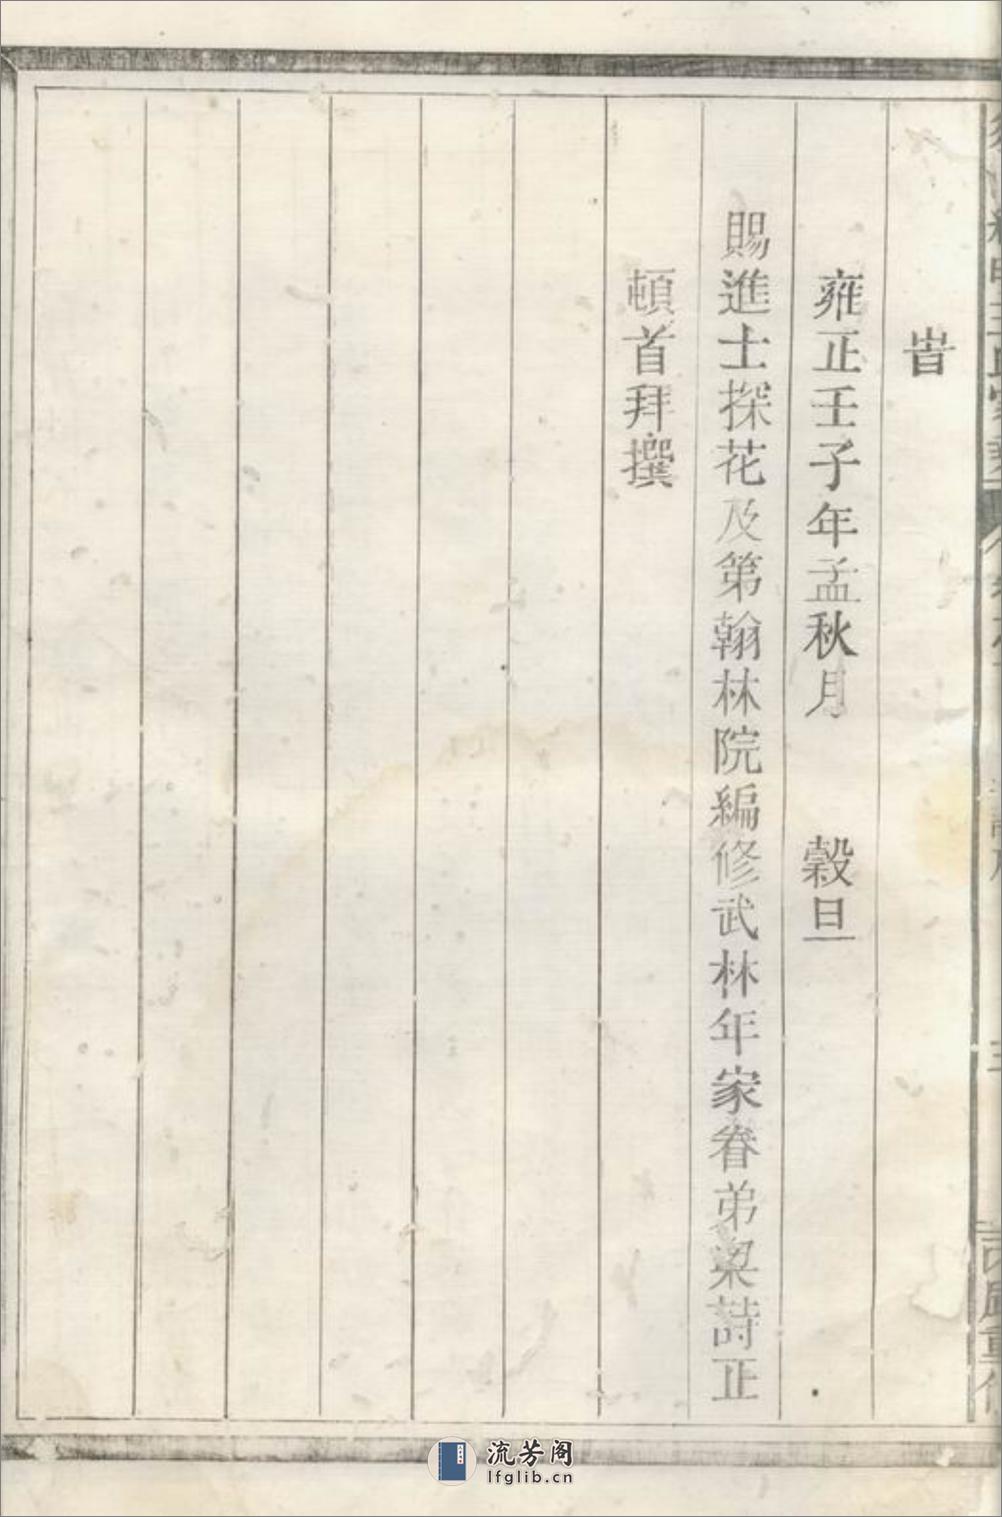 旹
雍正壬子年孟秋月　穀旦
賜進士探花及第翰林院編修武林年家眷弟梁詩正
頓首拜撰
流芳阁
lfglib.cn